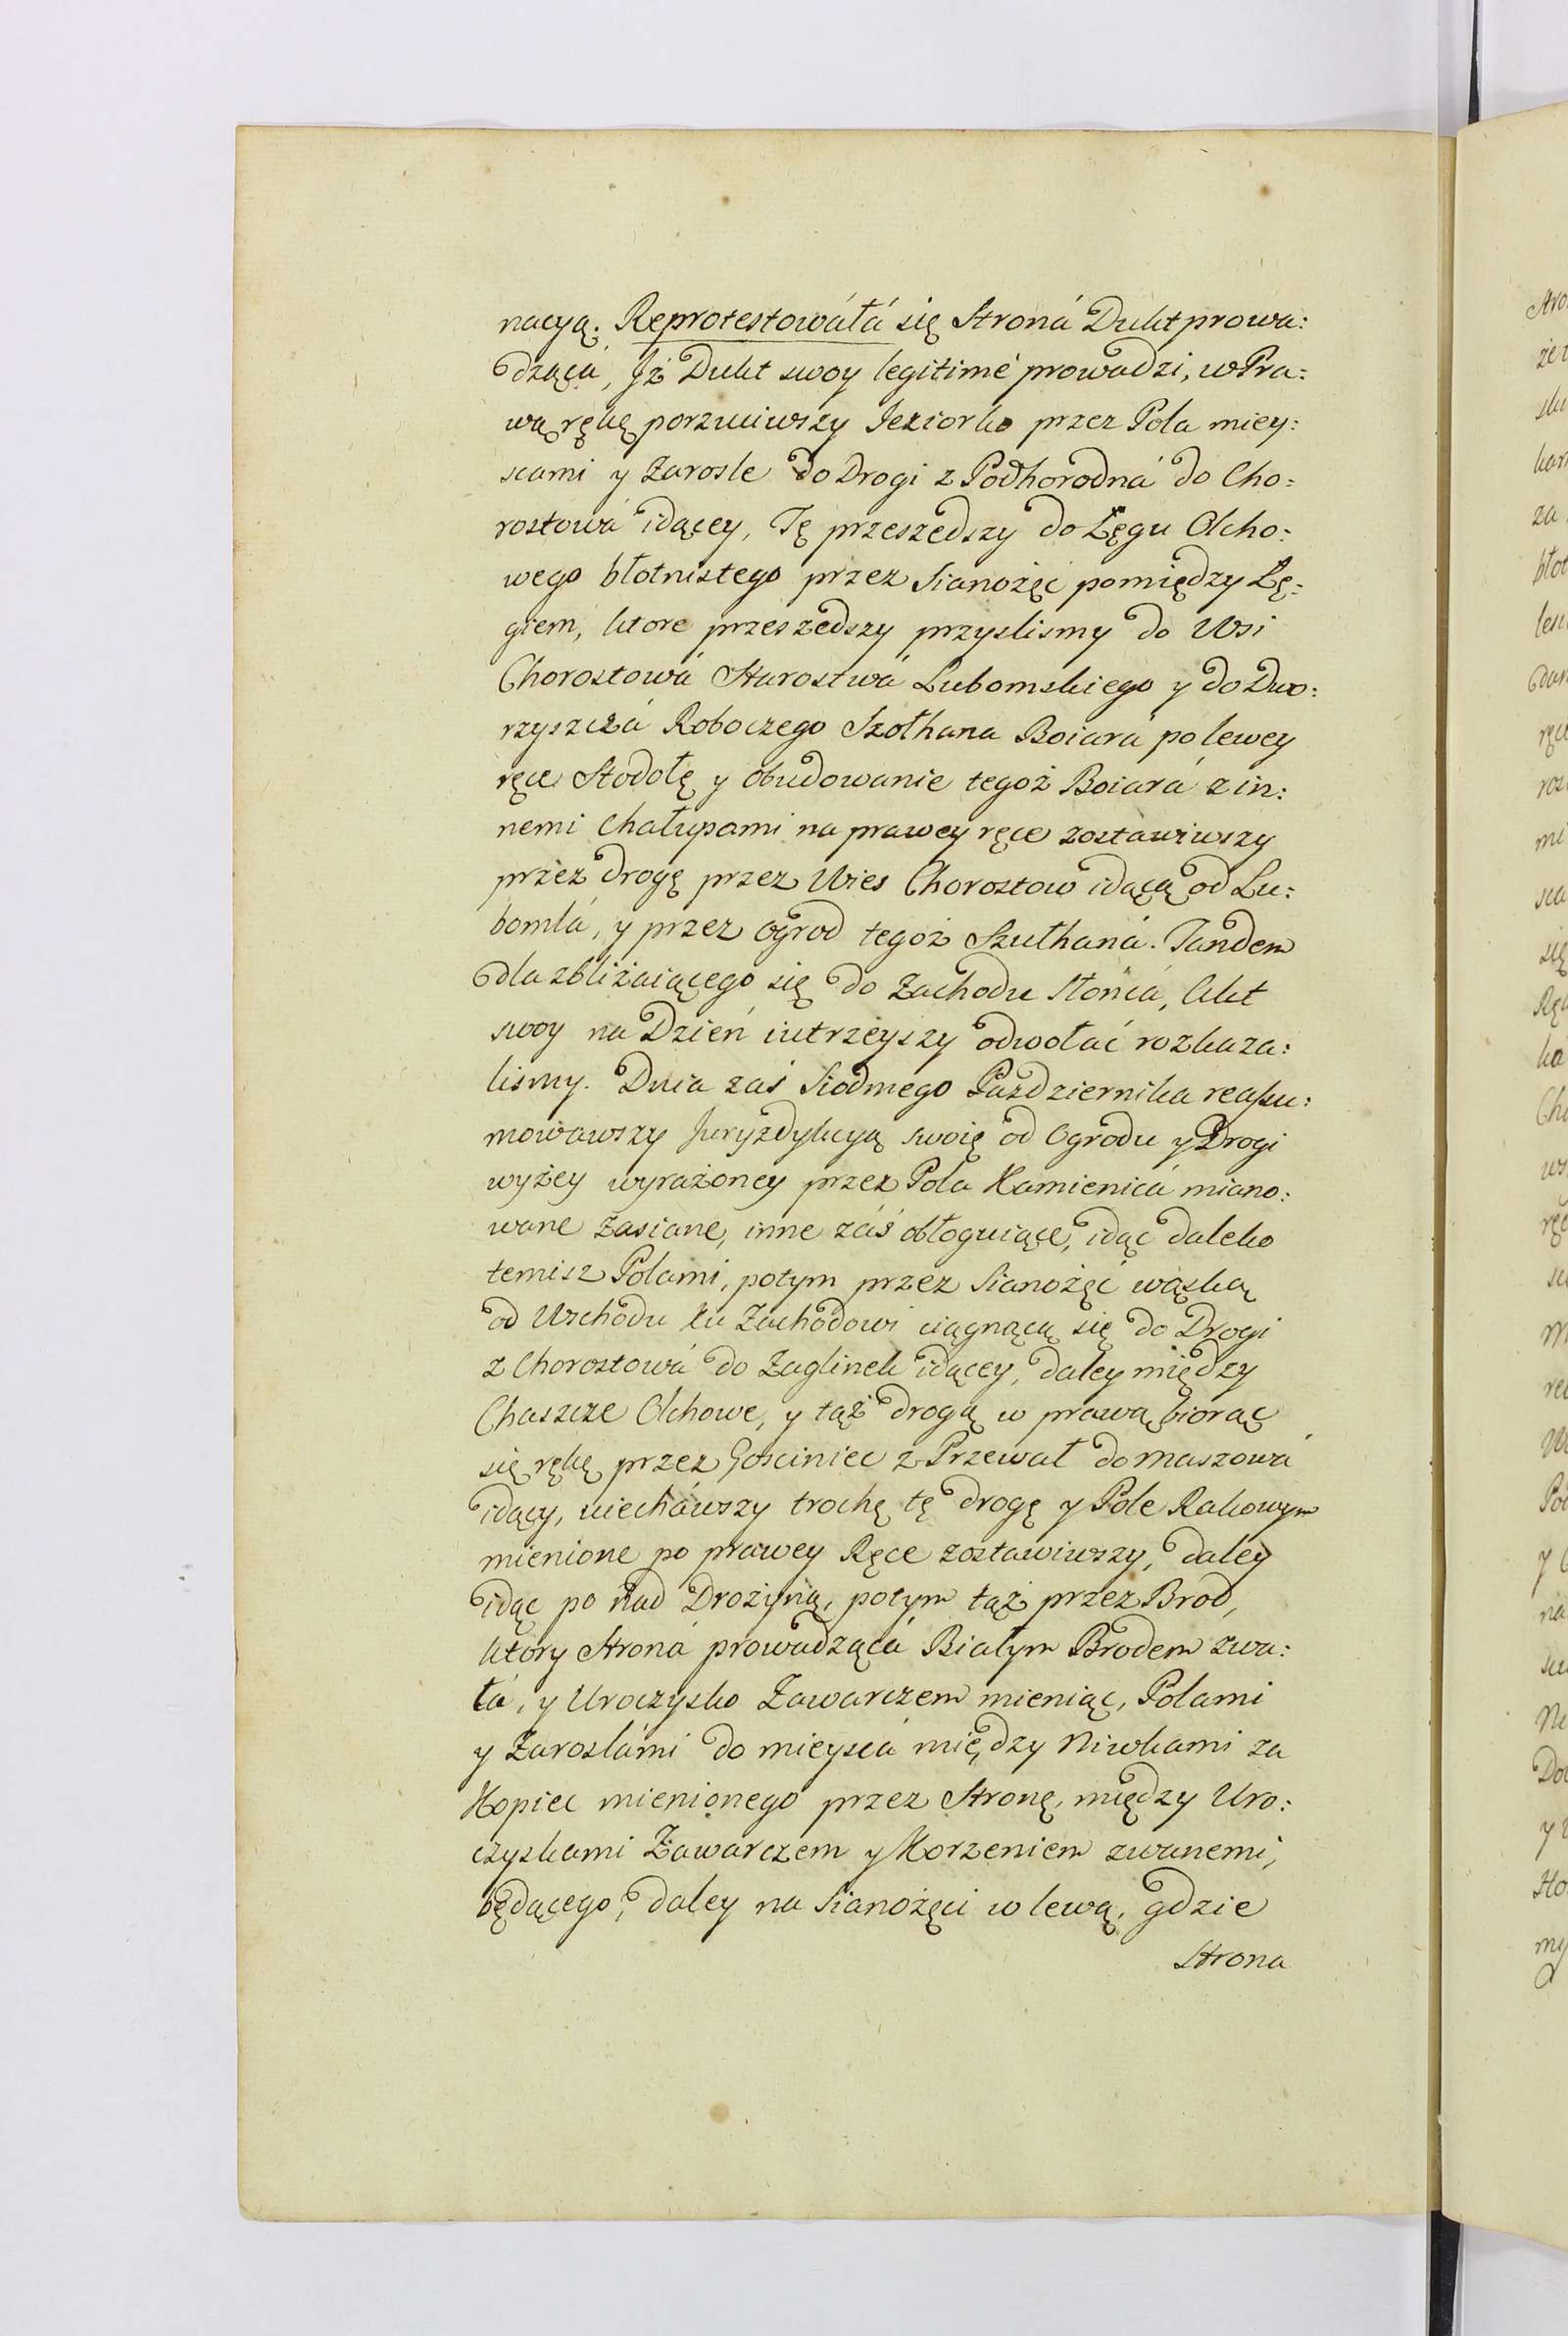 nacyą. Reprotestowáłá się Stroná Dukt prowa:
dząca, Jż Dukt swoy legitimè prowadzi, w Pra:
wą rękę porzuciwszy Jeziorko przez Pola miey:
scami y Zarosle do Drogi z Podhorodná do Cho:
rostowá idącey, Tę przeszedszy do Łęgu Olcho:
wego błotnistego przez Sianożęć pomiędzy Łę:
giem, ktore przeszedszy przyslismy do Wsi
Chorostowá Starostwá Lubomskiego y do Dwo:
rzyszczá Roboczego Szołhana Boiará po lewey
ręce Stodołę y obudowanie tegoż Boiará z in:
nemi Chałupami na prawey ręce zostawiwszy
przez drogę przez Wies Chorostow idącą od Lu:
bomlá, y przez Ogrod tegoż Szułhaná. Tandem
dla zbliżaiącego się do Zachodu Słońcá, Akt
swoy na Dzień iutrzeyszy odwołać rozkaza:
lismy. Dnia zaś Siodmego Października reassu:
mowawszy Juryzdykcyą swoię od Ogrodu y Drogi
wyżey wyrażoney przez Pola Kamienicá miano:
wane zasiane, inne záś obłoguiące, idąc daleko
temisz Polami, potym przez Sianożęć wąską
od Wschodu ku Zachodowi ciągnącą się do Drogi
z Chorostowá do Zaglinek idącey, daley między
Chaszcze Olchowe, y tąż drogą w prawą biorąc
się rękę przez Gosciniec z Przewał do Maszowá
idący, uiechawszy trochę tę drogę y Pole Rakowym
mienione po prawey Ręce zostawiwszy, daley
idąc po nad Drożyną, potym tąż przez Brod,
ktory Stroná prowadzącá Białym Brodem zwa:
łá, y Uroczysko Zawarczem mieniąc, Polami
y Zaroslámi do mieyscá między Niwkami za
Kopiec mienionego przez Stronę, między Uro:
czyskami Zawarczem y Korzeniem zwanemi,
będącego, daley na Sianożęci w lewą, gdzie
Strona